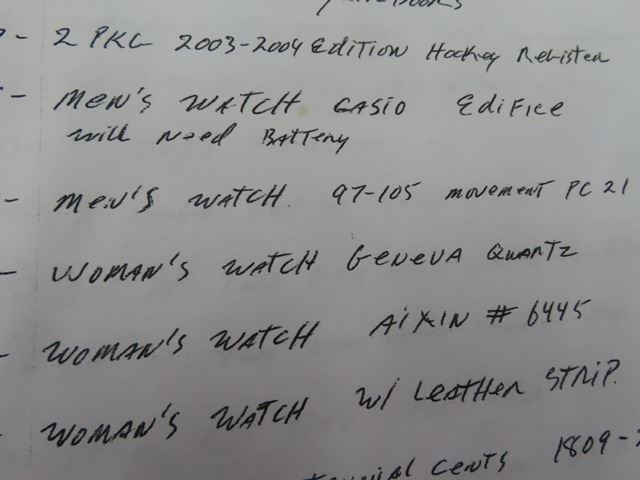 - 2 PKG 2003-2004 Edition Hockey Register
- MEN'S WATCH CASIO EdiFice
will Need BATTERY
- MEN'S WATCH. 97-105 MOVEMENT PC 21
- WOMAN'S WATCH GENEVA QUARTZ
- WOMAN'S WATCH AiXIN # 6445
- WOMAN'S WATCH W/ LEATHER STRIP.
CENTS 1809-